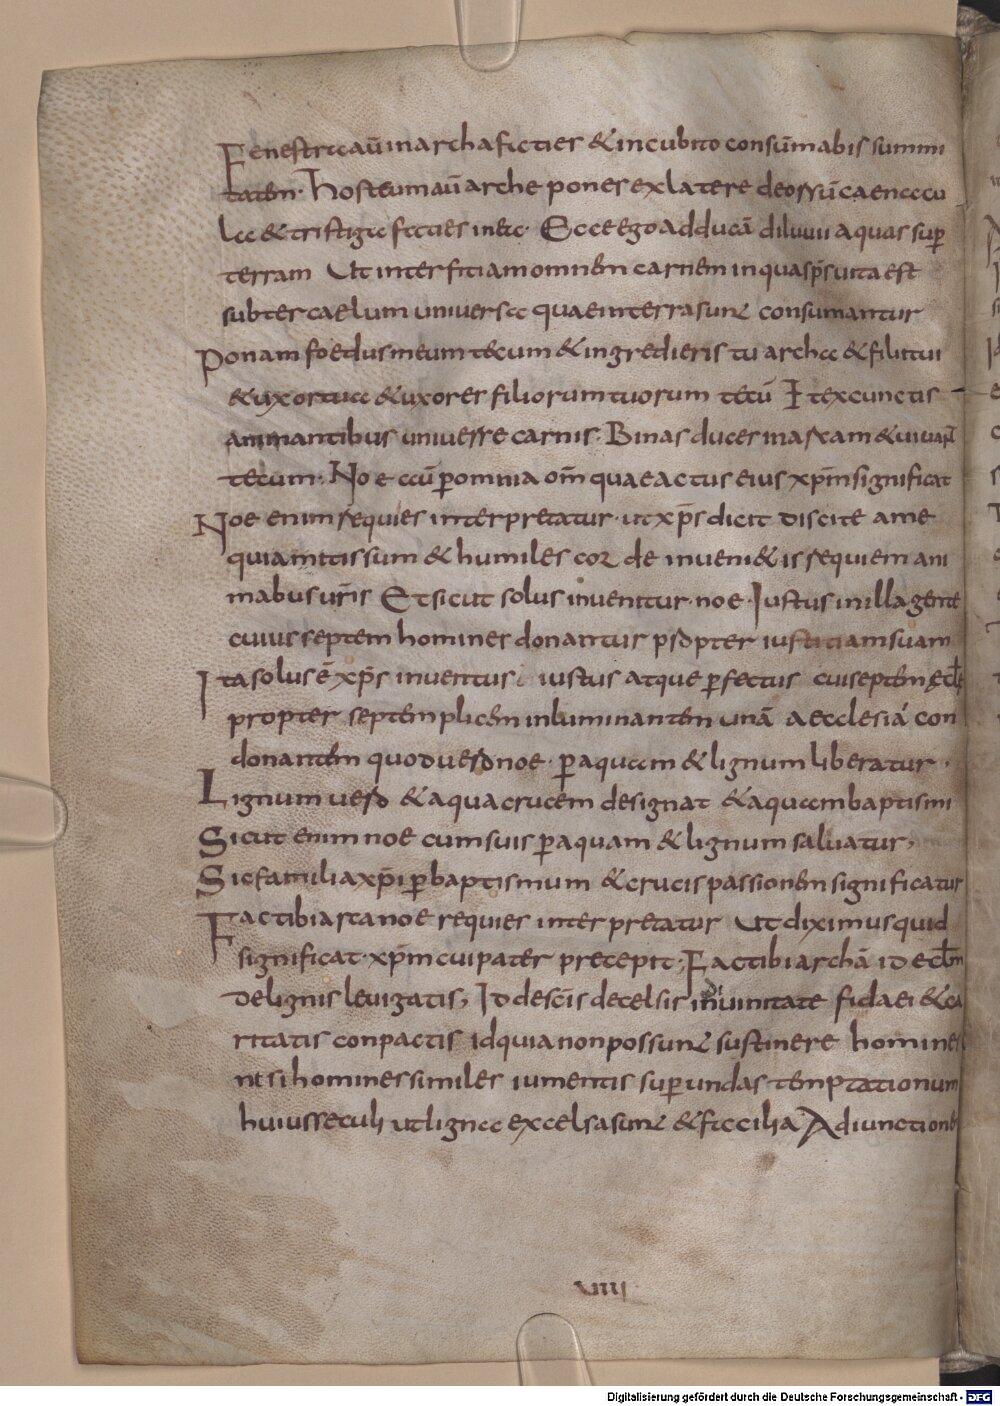 Fenestra aū in archa facies & in cubito consūmabis summi
tatem. Hosteum aū arche pones ex latere deorsū caenacu
la & tristiga facies in ea. Ecce ego adducā diluuii aquas sup̄
terram Ut interficiam omnem carnem in qua sp̄s uita est
subter caelum uniuersa quae in terra sunt consumantur
Ponam foedus meum tecum & ingredieris tu archa & filii tui
& uxor tua & uxores filiorum tuorum tecū Et ex cunctis
animantibus uniuerse carnis. Binas duces in arcam & uiuant
tecum. Noe aū p̄ omnia om̄ quae actus eius xp̄m significat
Noe enim requies interpretatur. ut xp̄s dicit discite ame
quia mitis sum & humiles cor de inueni&is requiem ani
mabus ur̄is Et sicut solus inuenitur. noe. Iustus in illa gente
cuius septem homines donantur propter iustitiam suam
Ita solus ē xp̄s inuentus iustus atque p̄fectus cui septem ęcłe
propter septemplicem inluminantem unā aecclesiā con
donantem quod uero noe. p̄ aquam & lignum liberatur.
Lignum uero & aqua crucem designat & aquam baptismi
Sicut enim noe cum suis p̄ aquam & lignum saluatur,
Sic familia xp̄i p̄ baptismum & crucis passionem significatur
Fac tibi arca noe requies interpretatur Ut diximus quid
significat. xp̄m cui pater precepit; Fac tibi archā id ecłm
De lignis leuigatis, Id de sc̄is de celsis in diuinitate fidaei & ca
ritatis conpactis id quia non possunt sustinere homines
nisi homines similes iumentis sup̄ undas temptationum
huius seculi ut ligna excelsa sunt & facilia Adiunctione
VIIII
Digitalisierung gefördert durch die Deutsche Forschungsgemeinschaft - DFG